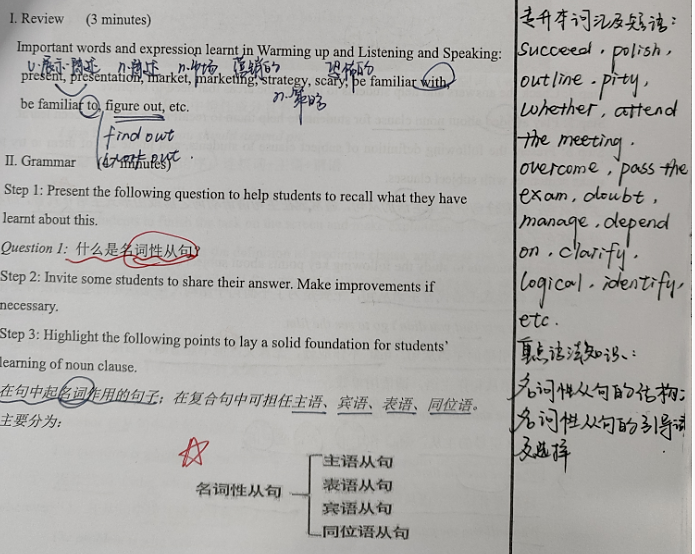 I. Review (3 minutes)
Important words and expression learnt in Warming up and Listening and Speaking:
v.展示·陈述 n.陈述 n.市场 营销的 恐怖的
present, presentation, market, marketing, strategy, scary, be familiar with,
n.策略
be familiar to, figure out, etc.
find out
out.
II. Grammar (67 minutes)
Step 1: Present the following question to help students to recall what they have
learnt about this.
Question 1: 什么是名词性从句?
Step 2: Invite some students to share their answer. Make improvements if
necessary.
Step 3: Highlight the following points to lay a solid foundation for students’
learning of noun clause.
在句中起名词作用的句子；在复合句中可担任主语、宾语、表语、同位语。
主要分为:
名词性从句
主语从句
表语从句
宾语从句
同位语从句
专升本词汇及短语:
succeed, polish,
outline, pity,
whether, attend
the meeting,
overcome, pass the
exam, doubt,
manage, depend
on, clarify,
logical, identify,
etc.
重点语法知识:
名词性从句的结构;
名词性从句的引导词
及选择